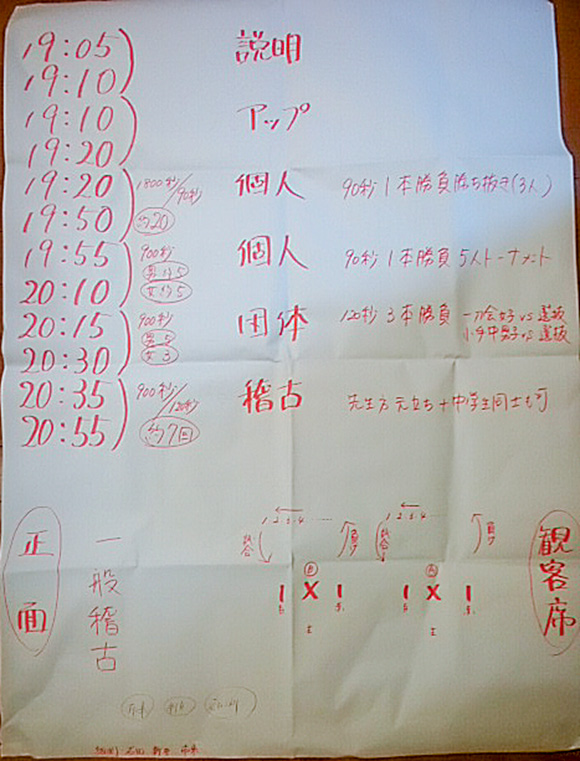 19:05
19:10
説明
19:10
19:20
アップ
19:20
19:50
1800秒/90秒
約20
個人
90秒1本勝負勝ち抜き(3人)
19:55
20:10
900秒
男子5
女子5
個人
90秒1本勝負 5人トーナメント
20:15
20:30
900秒
男5
女3
団体
120秒3本勝負
一刀会女子vs選抜
小手中男子vs選抜
20:35
20:55
900秒/120秒
約7回
稽古
先生方元立ち+中学生同士も可
正面
一般稽古
試合
1 2 3 4 ……
負け
試合
1 2 3 4 ……
負け
観客席